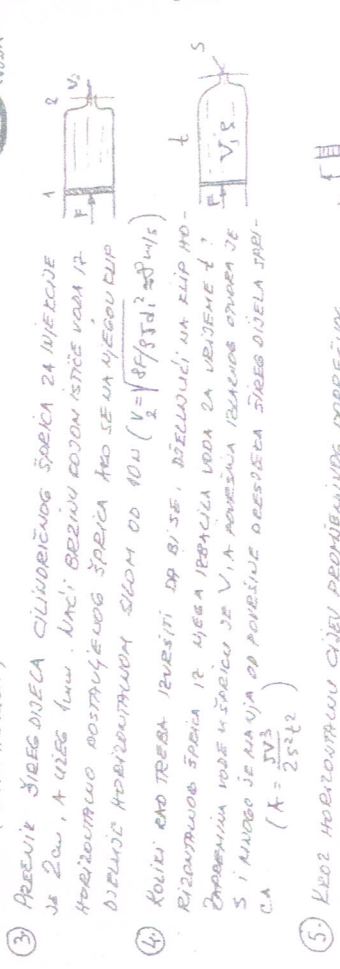 ③ PREČNIK ŠIREG DIJELA CILINDRIČNOG ŠPRICA ZA INJEKCIJE
JE 2cm, A UŽEG 1mm. NAĆI BRZINU KOJOM ISTIČE VODA IZ
HORIZONTALNO POSTAVLJENOG ŠPRICA AKO SE NA NJEGOV KLIP
DJELUJE HORIZONTALNOM SILOM OD 10N (V₂=√8F/ρπd₁² ≈8m/s)
1 2
F V₂
④ KOLIKI RAD TREBA IZVRŠITI DA BI SE, DJELUJUĆI NA KLIP HO-
RIZONTALNOG ŠPRICA IZ NJEGA IZBACILA VODA ZA VRIJEME t?
ZAPREMINA VODE U ŠPRICU JE V, A POVRŠINA IZLAZNOG OTVORA JE
S I MNOGO JE MANJA OD POVRŠINE PRESJEKA ŠIREG DIJELA ŠPRI-
CA. (A = ρV³/2S²t²)
t
F V, ρ S
⑤ KROZ HORIZONTALNU CIJEV PROMJENLJIVOG
VODA